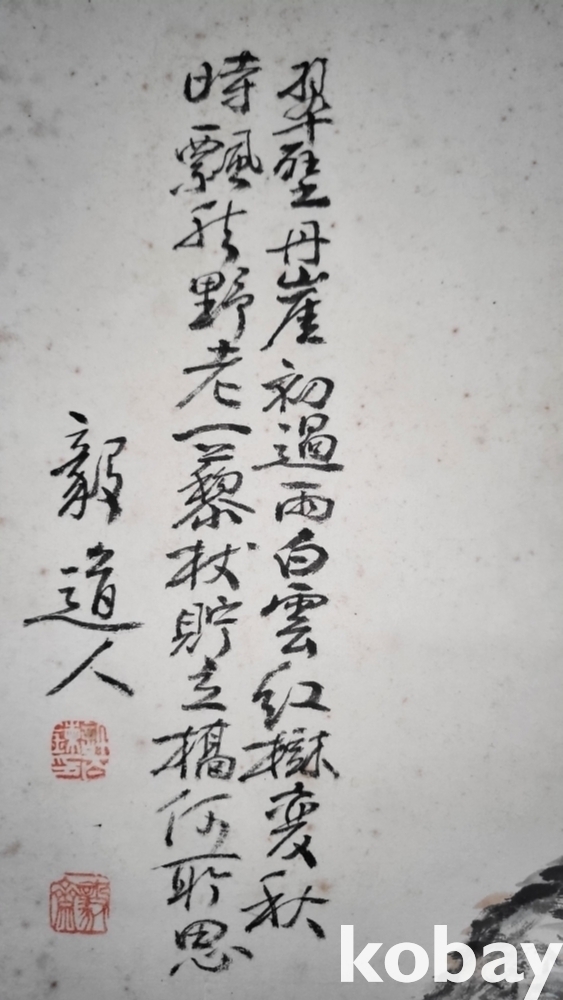 翠壁丹崖初過雨白雲紅樹変秋
時飄然野老一藜杖貯立橋何所思
毅道人
kobay